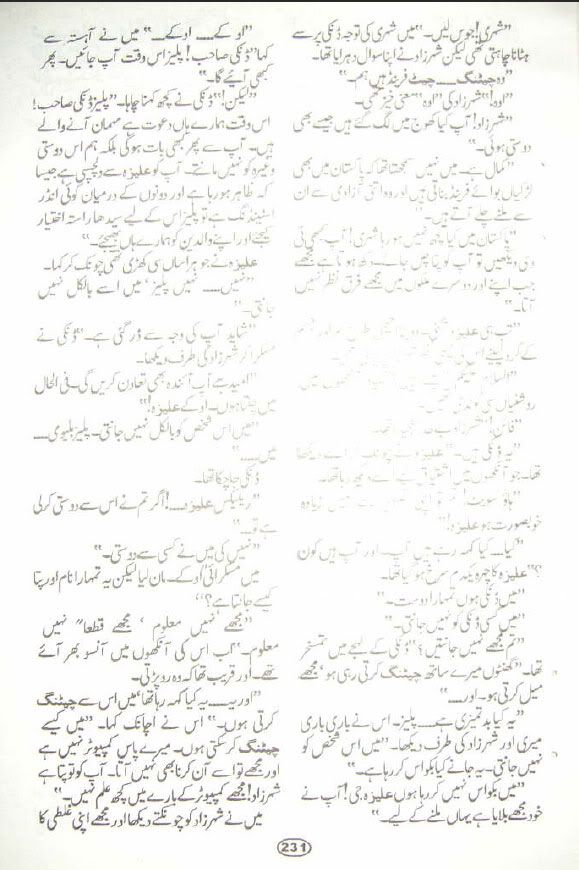 ”شہری! جوس لیں۔“ میں شہری کی توجہ ڈنکی پر سے
ہٹانا چاہتی تھی لیکن شہرزاد نے اپنا سوال دہرایا تھا۔
”وہ چیٹنگ۔۔۔۔ چیٹ فرینڈ ہیں ہم۔“
”اوہ!“ شہرزاد کی ”اوہ“ معنی خیز تھی۔
”شہرزاد! آپ کیا کھوج میں لگ گئے ہیں جیسے بھی
دوستی ہوئی۔“
”کمال ہے۔ میں نہیں سمجھتا تھا کہ پاکستان میں بھی
لڑکیاں بوائے فرینڈ بناتی ہیں اور وہ اتنی آزادی سے ان
سے ملنے چلے آتے ہیں۔“
”پاکستان میں کیا کچھ نہیں ہو رہا شہری! آپ کبھی ٹی
وی دیکھیں تو آپ کو پتا چل جائے۔ دکھ ہوتا ہے مجھے
جب اپنے اور دوسرے ملکوں میں مجھے فرق نظر نہیں
آتا۔“
تب ہی علیزہ
کے گرد لپیٹے اس کی
”السلام علیکم
روشنیاں سی کوندتی تھیں۔
”یہ ڈنکی ہیں۔“ علیزہ نے چونک کر اسے دیکھا
تھا۔ جو آنکھوں میں اشتیاق لیے اسے دیکھ رہا تھا۔
زیادہ
خوبصورت ہو علیزہ!“
”کیا۔۔ کیا کہہ رہے ہیں آپ۔ اور آپ ہیں کون
؟“ علیزہ کا چہرہ یکدم سرخ ہو گیا تھا۔
”میں ڈنکی ہوں تمہارا دوست۔“
”میں کسی ڈنکی کو نہیں جانتی۔“
”تم مجھے نہیں جانتیں؟“ ڈنکی کے لہجے میں تمسخر
تھا۔ ”گھنٹوں میرے ساتھ چیٹنگ کرتی رہی ہو‘ مجھے
میل کرتی ہو۔ اور۔۔۔۔“
”یہ کیا بدتمیزی ہے۔۔۔۔ پلیز۔ اس نے باری باری
میری اور شہرزاد کی طرف دیکھا۔ ”میں اس شخص کو
نہیں جانتی۔ یہ جانے کیا بکواس کر رہا ہے۔“
”میں بکواس نہیں کر رہا ہوں علیزہ جی! آپ نے
خود مجھے بلایا ہے یہاں ملنے کے لیے۔“
”او کے۔۔۔۔ او کے۔۔“ میں نے آہستہ سے
کہا ”ڈنکی صاحب! پلیز اس وقت آپ جائیں۔ پھر
کبھی آیئے گا۔“
”لیکن!“ ڈنکی نے کچھ کہنا چاہا۔ ”پلیز ڈنکی صاحب!
اس وقت ہمارے ہاں دعوت ہے مہمان آنے والے
ہیں۔ آپ سے پھر بھی بات ہو گی بلکہ ہم اس دوستی
وغیرہ کو نہیں مانتے۔ آپ کو علیزہ سے دلچسپی ہے جیسا
کہ ظاہر ہو رہا ہے اور دونوں کے درمیان کوئی انڈر
اسٹینڈنگ ہے تو پلیز اس کے لیے سیدھا راستہ اختیار
کیجئے اور اپنے والدین کو ہمارے ہاں بھیجئے۔“
علیزہ نے جو ہراساں سی کھڑی تھی چونک کر کہا۔
”نہیں۔۔۔۔ نہیں پلیز‘ میں اسے بالکل نہیں
جانتی۔“
”شاید آپ کی وجہ سے ڈر گئی ہے۔“ ڈنکی نے
مسکرا کر شہرزاد کی طرف دیکھا۔
”امید ہے آپ آئندہ بھی تعاون کریں گی۔ فی الحال
میں چلتا ہوں۔ او کے علیزہ!“
”میں اس شخص کو بالکل نہیں جانتی۔ پلیز بلیو می۔۔۔۔
میں۔۔۔۔“
ڈنکی جا چکا تھا۔
”ریلیکس علیزہ۔۔۔! اگر تم نے اس سے دوستی کرلی
ہے تو۔۔“
”نہیں کی میں نے کسی سے دوستی۔“
میں مسکرائی ”او کے۔ مان لیا لیکن یہ تمہارا نام اور پتا
کیسے جانتا ہے؟“
”مجھے نہیں معلوم‘ مجھے قطعاً نہیں
معلوم۔“ اب اس کی آنکھوں میں آنسو بھر آئے
تھے۔ اور قریب تھا کہ وہ رو پڑتی۔
”اور یہ۔۔ یہ کیا کہہ رہا تھا‘ میں اس سے چیٹنگ
کرتی ہوں۔“ اس نے اچانک کہا۔ ”میں کیسے
چیٹنگ کر سکتی ہوں۔ میرے پاس کمپیوٹر نہیں ہے
اور مجھے تو اسے آن کرنا بھی نہیں آتا۔ آپ کو تو پتا ہے
شہرزاد! مجھے کمپیوٹر کے بارے میں کچھ علم نہیں۔“
میں نے شہرزاد کو چونکتے دیکھا اور مجھے اپنی غلطی کا
231